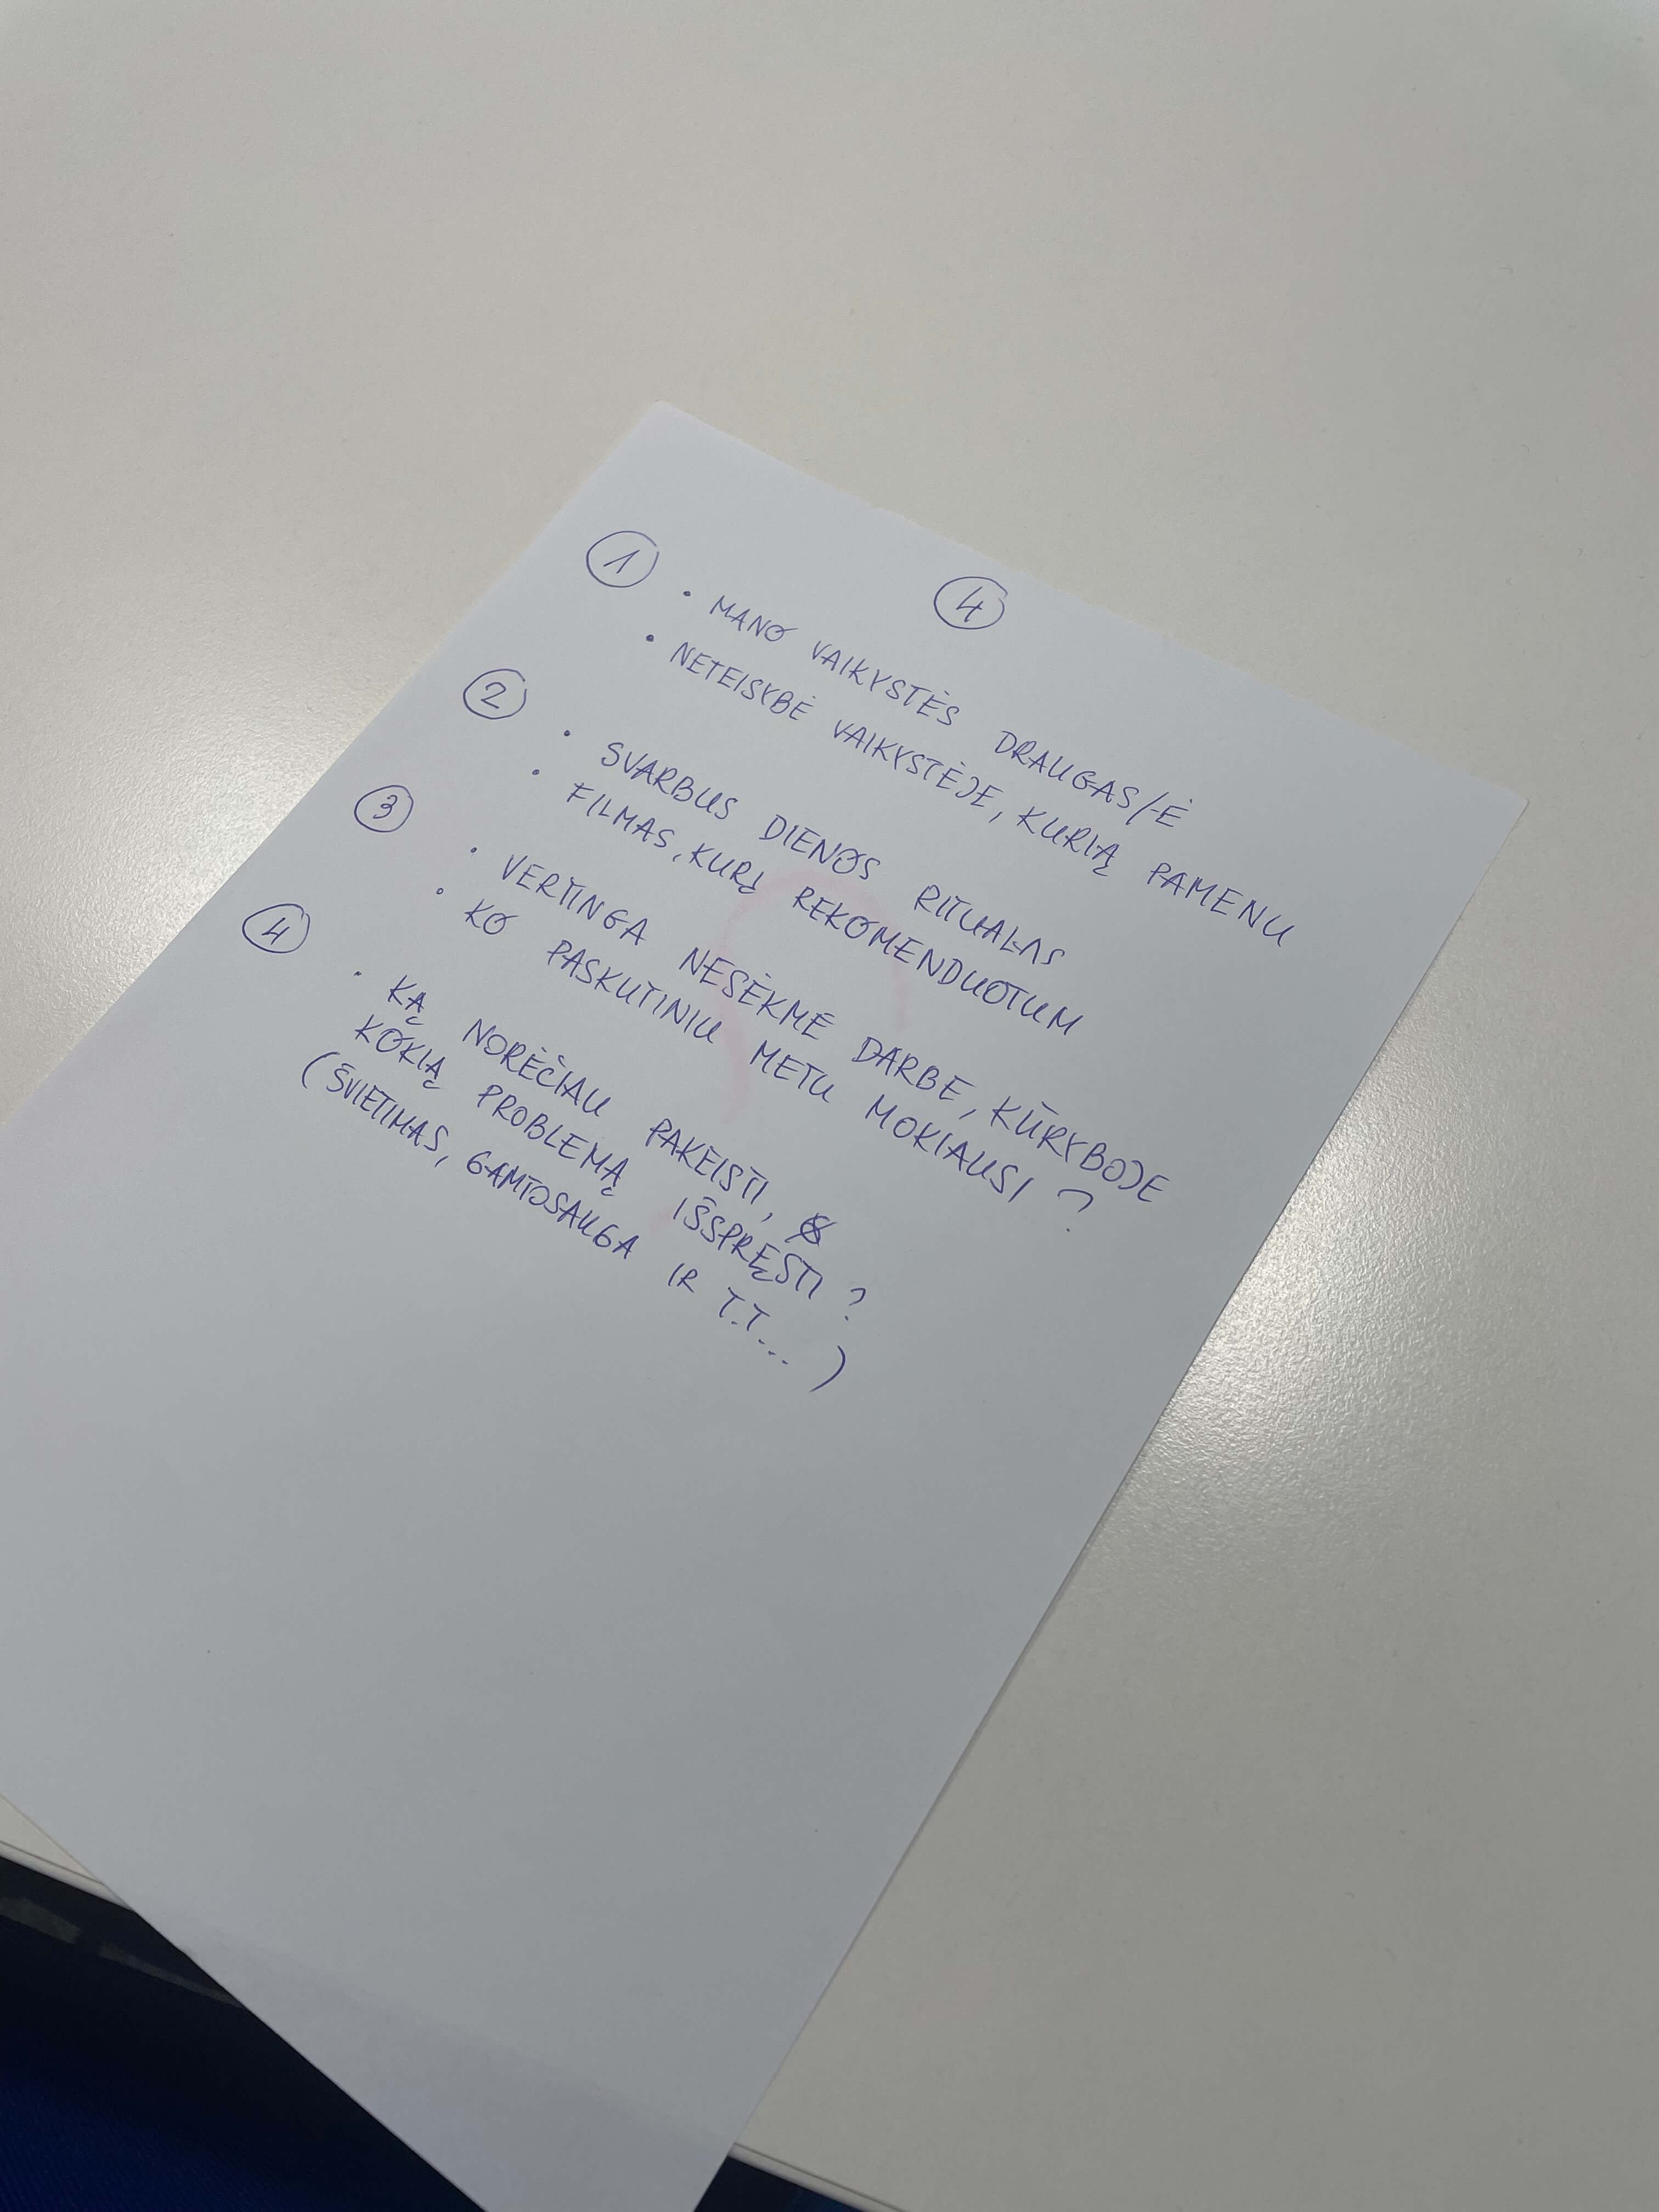 4
1
• MANO VAIKYSTĖS DRAUGAS/-Ė
• NETEISYBĖ VAIKYSTĖJE, KURIĄ PAMENU
2
• SVARBUS DIENOS RITUALAS
• FILMAS, KURĮ REKOMENDUOTUM
3
• VERTINGA NESĖKMĖ DARBE, KŪRYBOJE
• KO PASKUTINIU METU MOKIAUSI ?
4
• KĄ NORĖČIAU PAKEISTI,
KOKIĄ PROBLEMĄ IŠSPRĘSTI ?
(ŠVIETIMAS, GAMTOSAUGA IR T.T... )